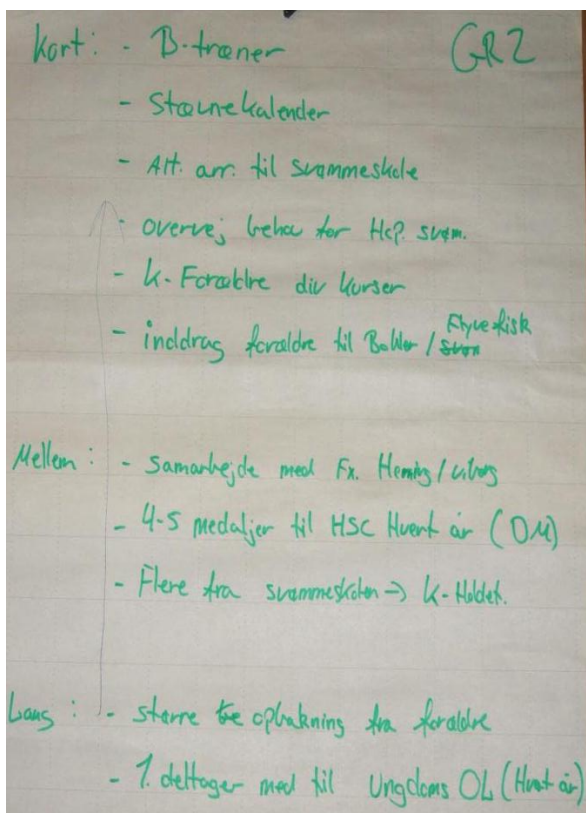 Kort: - B-træner GR2
- Stævnekalender
- Alt. arr. til svømmeskole
- overvej behov for Hcp. svøm.
- K-Forældre div kurser
- inddrag forældre til Bobler / svøm Flyvefisk
Mellem: - Samarbejde med Fx. Herning / Viborg
- 4-5 medaljer til HSC Hvert år (DM)
- Flere fra svømmeskolen → K-Holdet.
Lang: - større opbakning fra forældre
- 1. deltager med til Ungdoms OL (Hvert år)